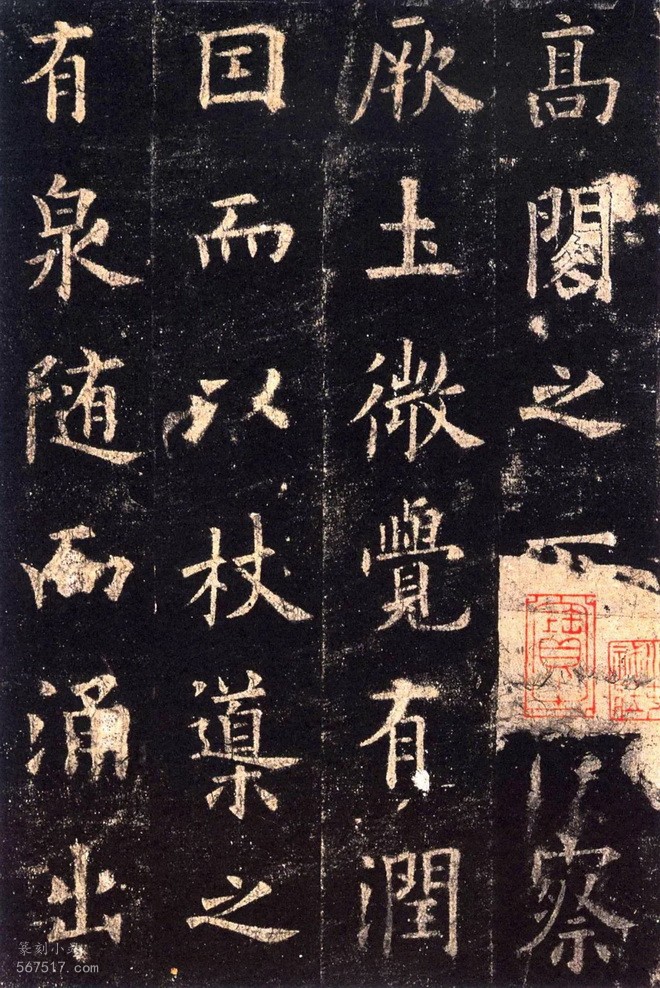 高閣之察
厥土微覺有潤
因而以杖導之
有泉随而涌出
567517.com